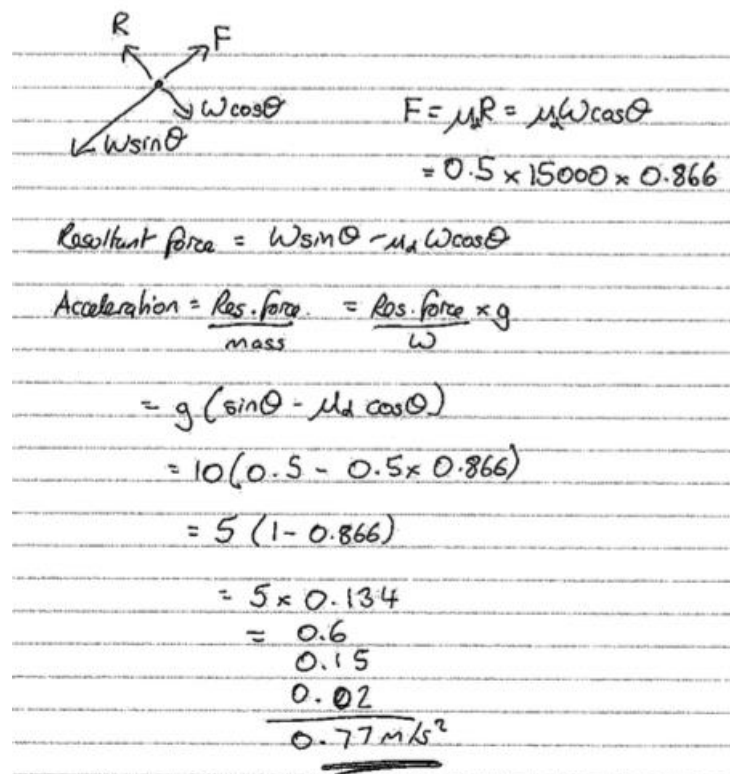 R F
Wcosθ
Wsinθ
F = μdR = μdWcosθ
= 0.5 × 15000 × 0.866
Resultant force = Wsinθ - μd Wcosθ
Acceleration = Res. force. / mass = Res. force / W × g
= g (sinθ - μd cosθ)
= 10(0.5 - 0.5 × 0.866)
= 5 (1 - 0.866)
= 5 × 0.134
= 0.6
0.15
0.02
0.77 m/s²